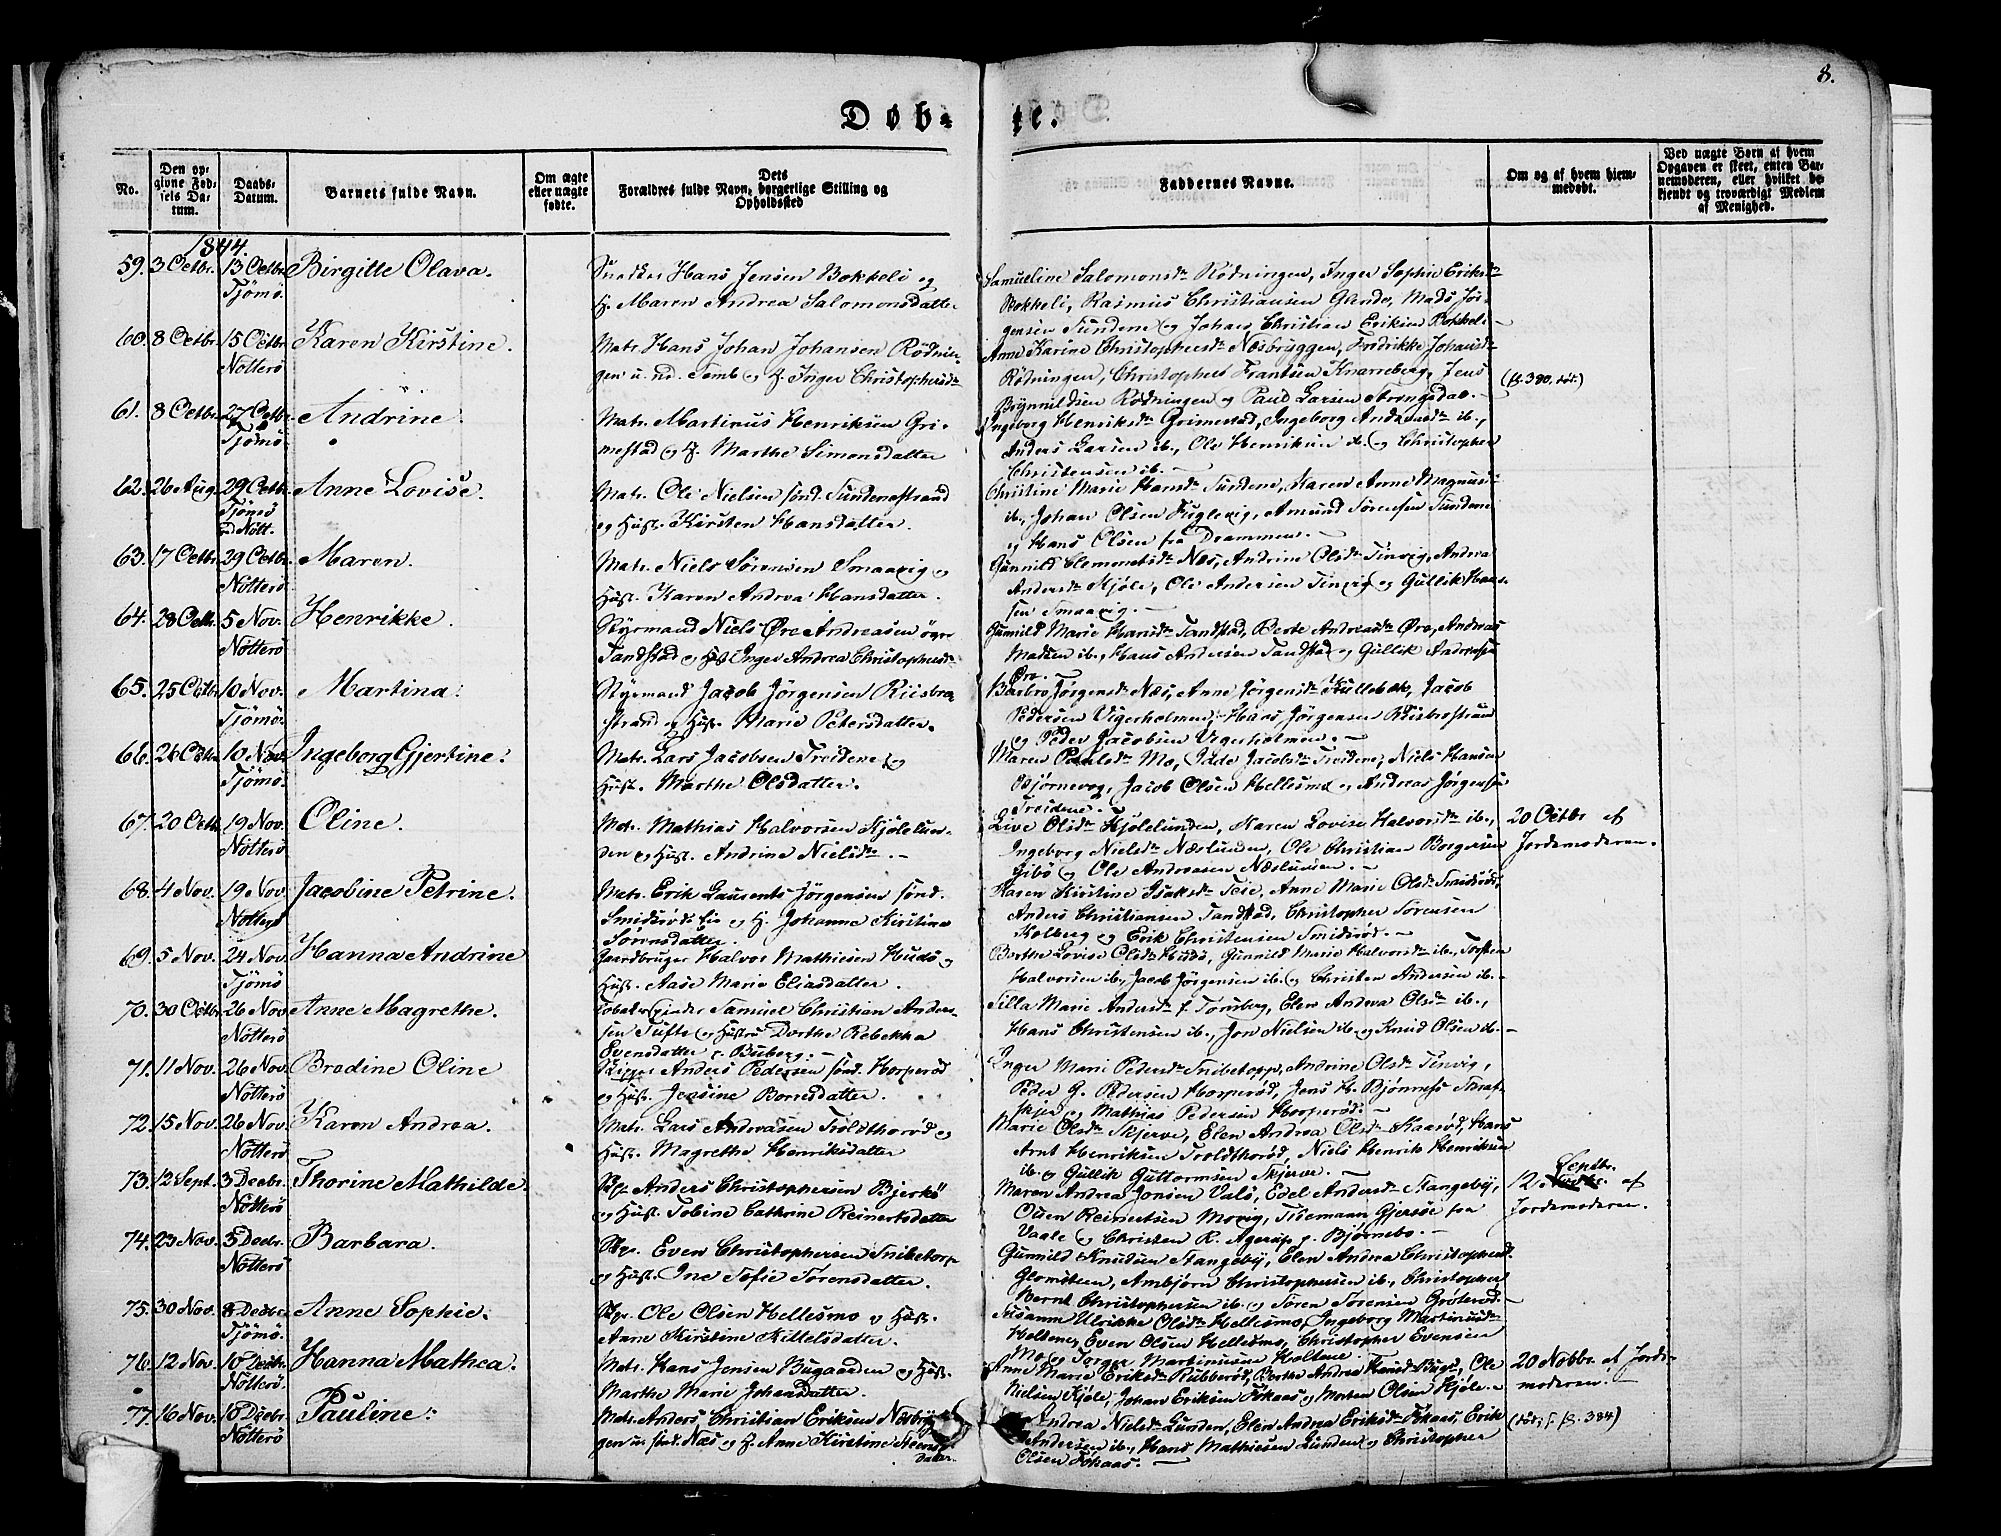 8.
Døbte.
No.
Den opgivne Fødsels Datum.
Daabs-Datum.
Barnets fulde Navn.
Om ægte eller uægte fødte.
Forældres fulde Navn, Dets borgerlige Stilling og Opholdssted
Faddernes Navne.
Om og af hvem hjemmedøbt.
Ved uægte Børn af hvem Opgaven er skeet, enten Barnemoderen, eller hvilket bekjendt og troværdigt Medlem af Menighed.
1844.
59. 3 Octbr. 13 Octbr Tjømø. Birgitte Olava.
Snedker Hans Jensen Bokkeli og
H. Maren Andrea Salomonsdatter
Samueline Salomonsdr Rødningen, Inger Sophie Eriksdr
Bokkeli, Rasmus Christiansen Glende, Mads Jør-
gensen Sundene og Johan Christian Eriksen Bokkeli
60. 8 Octbr. 15 Octbr Nøtterø Karen Kirstine.
Matr. Hans Johan Johansen Rødnin-
gen u. nd. Semb og H. Inger Christophersdr
Anne Karine Christophersdr Næsbryggen, Fredrikke Johansdr
Rødningen, Christopher Frantsen Knarreberg, Jens
Brynnildsen Rødningen og Paul Larsen Strengsdal.
(fl. 380. død.)
61. 8 Octbr. 27 Octbr. Tjømø. Andrine.
Matr. Martinus Henriksen Gri-
mestad og H. Marthe Simonsdatter
Ingeborg Henriksdr Grimestad, Ingeborg Andersdr ib.,
Anders Larsen ib., Ole Henriksen ib. og Christopher
Christensen ib.
62. 26 Aug. 29 Octbr. Tjømø ad Nøtt. Anne Lovise.
Matr. Ole Nielsen sønd. Sundenestrand
og Hust. Kirsten Hansdatter.
Christine Marie Hansdr Sundene, Karen Anne Magnusdr
ib., Johan Olsen Fuglevig, Amund Sørensen Sundene
og Hans Olsen fra Drammen.
63. 17 Octbr. 29 Octbr. Nøtterø Maren.
Matr. Niels Sørensen Smaavig og
Hust. Karen Andrea Hansdatter.
Gunnild Clemmetsdr Næs, Andrine Olsdr Tinvig, Andrea
Andersdr Kjøle, Ole Andersen Tinvig og Gullik Han-
sen Smaavig.
64. 28 Octbr. 5 Nov. Nøtterø Henrikke.
Styrmand Niels Øre Andreasen øgre
Tandstad og Hust Inger Andrea Christophersdr
Gunnild Marie Hansdr Tandstad, Berte Andreasdr Øre, Andreas
Madsen ib., Hans Andersen Tandstad og Gullik Andersen
Øre.
65. 25 Octbr. 10 Nov. Tjømø. Martina.
Styrmand Jacob Jørgensen Riisbro
strand og Hust. Marie Petersdatter.
Barbro Jørgensdr Næs, Anne Jørgensdr Kullebæk, Jacob
Pedersen Vigerholmen, Hans Jørgensen Riisbrostrand
og Peder Jacobsen Vigerholmen.
66. 26 Octbr. 10 Nov. Tjømø. Ingeborg Gjertine.
Matr. Lars Jacobsen Treidene og
Hust. Marthe Olsdatter.
Maren Paulsdr Mo, Inde Jacobsdr Treidene, Niels Hansen
Bjørnevog, Jacob Olsen Hellesmo og Andreas Jørgensen
Treidene.
67. 20 Octb. 19 Nov. Nøtterø Oline.
Matr. Mathias Halvorsen Kjølelun-
den og Hust. Andrine Nielsdr.
Live Olsdr Kjølelunden, Karen Lovise Halvorsdr ib.,
Ingeborg Nielsdr Næslunden, Ole Christian Borgersen
Gibø og Ole Andreasen Næslunden.
20 Octbr af
Jordemoderen.
68. 4 Nov. 19 Nov. Nøtterø Jacobine Petrine.
Matr. Erik Laurents Jørgensen sønd.
Smidsrød eie og H. Johanne Kirstine
Sørensdatter.
Karen Kirstine Isaksdr Teie, Anne Marie Olsdr Smidsrød,
Anders Christiansen Tandstad, Christopher Sørensen
Kolberg og Erik Christensen Smidsrød.
69. 5 Nov. 24 Nov. Tjømø Hanna Andrine
Gaardbruger Halvor Mathisen Hudø og
Hust. Aase Marie Eliasdatter.
Berthe Lovise Olsdr Hudø, Gunnild Marie Halvorsdr ib., Torsten
Halvorsen ib., Jacob Jørgensen ib. og Christen Andersen ib.
70. 30 Octbr. 26 Nov. Nøtterø Anne Magrethe.
Tobakspinder Samuel Christian Ander-
sen Tufte og Hustru Dorthe Rebekka
Evensdatter v. Buberg.
Silla Marie Andersdr f. Tønsberg, Elen Andrea Olsdr ib.,
Hans Christensen ib., Jon Nielsen ib. og Knud Olsen ib.
71. 11 Nov. 26 Nov. Nøtterø Bredine Oline
Skipper Anders Pedersen sønd. Horperød
og Hust. Jensine Borresdatter.
Inger Marie Pedersdr Snibetopp, Andrine Olsdr Tinvig,
Peder G. Pedersen Horperød, Jens H. Bjønness Skraf-
skjer og Mathias Pedersen Horperød.
72. 15 Nov. 26 Nov. Nøtterø Karen Andrea.
Matr. Lars Andreasen Troldthorød og
Hust. Magrethe Henriksdatter
Marie Olsdr Skjerve, Elen Andrea Olsdr Kaarød, Hans
Arnt Henriksen Troldthorød, Niels Henrik Henriksen
ib. og Gullik Guttormsen Skjerve.
73. 12 Sept. 3 Decbr. Nøtterø Thorine Mathilde.
Skpr Anders Christophersen Bjerkø
og Hust. Tobine Cathrine Reinertsdatter
Maren Andrea Jonsen Valø, Edel Andersdr Stangeby,
Olsen Reinertsen Movig, Tidemann Gjersøe fra
Vaale og Christen R. Agerup g. Bjørnebo.
Septbr.
12 af
Jordemoderen.
74. 23 Nov. 5 Decbr. Nøtterø Barbara.
Skpr. Even Christophersen Snibetorp
og Hust. Ine Sofie Sørensdatter.
Gunnild Knudsen Stangeby, Elen Andrea Christophersdr
Glomsteen, Ambjørn Christophersen ib., Christopher
Bernt Christophersen ib. og Søren Sørensen Grøterød.
75. 30 Nov. 8 Decbr. Tjømø. Anne Sophie.
Skpr. Ole Olsen Hellesmo og Hust.
Anne Kirstine Kittelsdatter.
Susanne Ulrikke Olsdr Hellesmo, Ingeborg Martinusdr
Holtene, Even Olsen Hellesmo, Christopher Evensen
Mo og Torger Martinusen Holtene.
76. 12 Nov. 10 Decbr. Nøtterø. Hanna Mathea.
Matr. Hans Jensen Bugaarden og Hust.
Marthe Marie Johansdatter.
Anne Marie Eriksdr Rubberød, Berthe Andrea Knudsdr Bugd, Ole
Nielsen Kjøle, Johan Eriksen Fokaas og Morten Olsen Kjøle.
20 Novbr. af Jorde-
moderen.
77. 16 Nov. 10 Decbr Nøtterø Pauline.
Matr. Anders Christian Eriksen Næsbryg
gen u. sønd. Næs og H. Anne Kirstine Steens-
datter.
Andrea Nielsdr Lunden, Elen Andrea Eriksdr Fokaas, Erik
Andersen ib., Hans Mathiesen Lunden og Christopher
Olsen Fokaas.
(død; s. fl. 384)